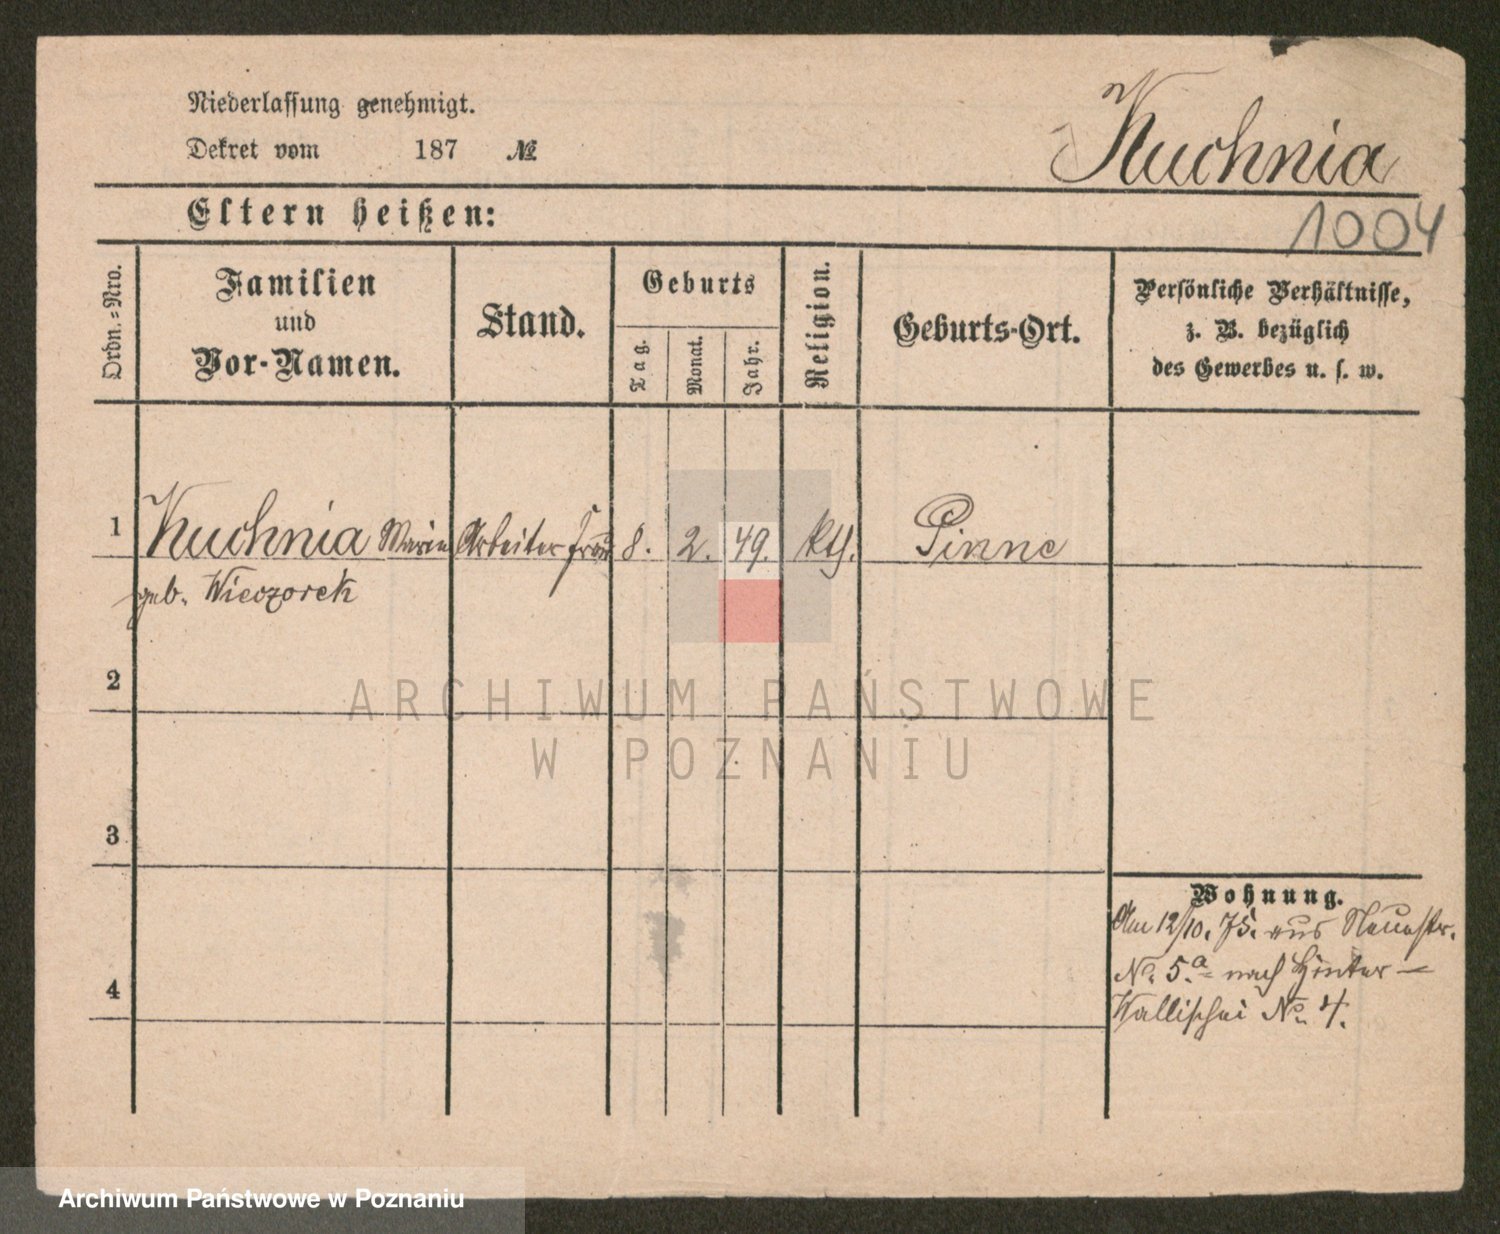 Niederlassung genehmigt.
Dekret vom 187 №
Kuchnia
Eltern heißen:
1004
Ordn.=Nro.
Familien
und
Vor-Namen.
Stand.
Geburts
Tag.
Monat.
Jahr.
Religion.
Geburts-Ort.
Persönliche Verhältnisse,
z. B. bezüglich
des Gewerbes u. s. w.
1 Kuchnia Marie Arbeiter frau 8. 2. 49. kth. Pinne
geb. Wieczorek
2
ARCHIWUM PAŃSTWOWE
W POZNANIU
3
Wohnung.
Am 12/10. 75. aus Neuestr.
No. 5.a nach Hinter-
4
Wallischei No. 4.
Archiwum Państwowe w Poznaniu